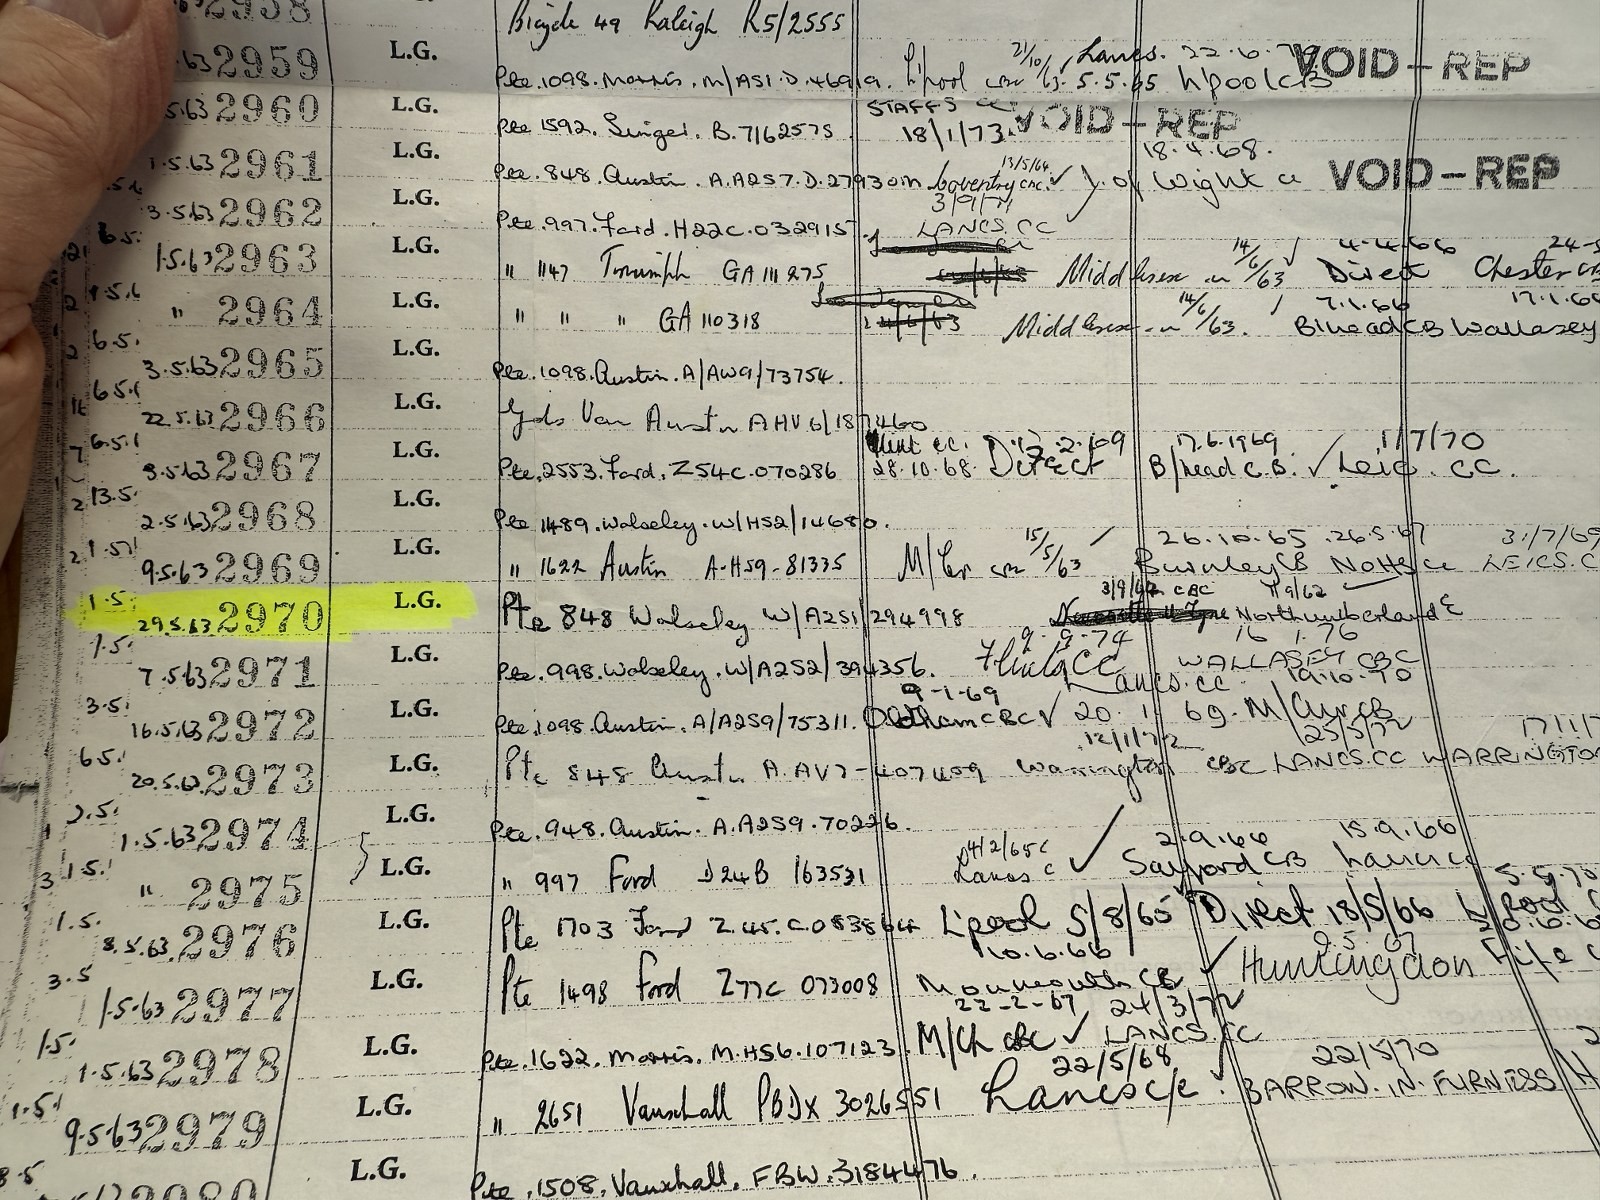 2958 L.G. Bicycle 49 Raleigh R5/2555
.63 2959 L.G. Pte. 1098. Morris. M/AS1.D.46919. L'pool CBC 21/10/63. 5.5.65 Lancs. 22.6.79 L'pool CB VOID-REP
5.63 2960 L.G. Pte 1592. Singer. B.7162575 STAFFS CC 18/1/73. VOID-REP
1.5.63 2961 L.G. Pte. 848. Austin. A.A2S7.D. Coventry CBC. 13/5/64 ✓ 18.4.68. I. of Wight CC VOID-REP
3.5.63 2962 L.G. Pte. 997. Ford. H22C.032915 3/9/71 LANCS.CC
1.5.63 2963 L.G. " 1147 Triumph GA 111275 Middlesex 14/6/63 ✓ 4.4.66 Direct Chester
" 2964 L.G. " " " GA 110318 Middlesex 14/6/63. 7.1.66 B/head CB 17.1.66 Wallasey
3.5.63 2965 L.G. Pte. 1098. Austin. A/AW9/73754.
22.5.63 2966 L.G. Gds Van Austin AHV6/187460
3.5.63 2967 L.G. Pte. 2553. Ford. Z54C.070286 Flint CC. 28.10.68. Direct 17.6.1969 B/head C.B. ✓ 1/7/70 Leic. CC.
2.5.63 2968 L.G. Pte 1489. Wolseley. W/HS2/14680.
9.5.63 2969 L.G. " 1622 Austin A-HS9-81335 M/Cr CBC 15/5/63 26.10.65 Burnley CB 26.5.67 Notts CC 31/7/69 LEICS.C
1.5 29.5.63 2970 L.G. Pte 848 Wolseley W/A2S1/294998 CBC Northumberland
7.5.63 2971 L.G. Pte. 998. Wolseley. W/A2S2/394356. 9-9-74 Flints CC 16 1.76 WALLASEY CBC
16.5.63 2972 L.G. Pte. 1098. Austin. A/A2S9/75311. 9-1-69 Oldham CBC ✓ 20 1 69. Lancs.cc. 19.10.70
20.5.63 2973 L.G. Pte 848 Austin A.AV7-407409 12/1/72 Warrington CBC 25/5/72 LANCS.CC 17/1/7 WARRINGTON
1.5.63 2974 L.G. Pte. 948. Austin. A.A2S9.70226.
" 2975 L.G. " 997 Ford D24B 163531 Lancs C ✓ 2.9.66 Salford CB 15.9.66 Lancs
8.5.63 2976 L.G. Pte 1703 Ford Z.45.C.083864 L'pool 5/8/65 Direct 18/5/66 L'pool
1.5.63 2977 L.G. Pte 1498 Ford Z77C 073008 10.6.66 Monmouth ✓ Huntingdon Fife
1.5.63 2978 L.G. Pte. 1622. Morris. M.HS6.107123. 22-2-67 M/Ch CBC ✓ 24/3/72 LANCS.CC
9.5.63 2979 L.G. " 2651 Vauxhall PBDX 3026551 22/5/68 Lancs c/c. 22/5/70 BARROW.IN.FURNESS
2980 L.G. Pte. 1508. Vauxhall. FBW.3184476.